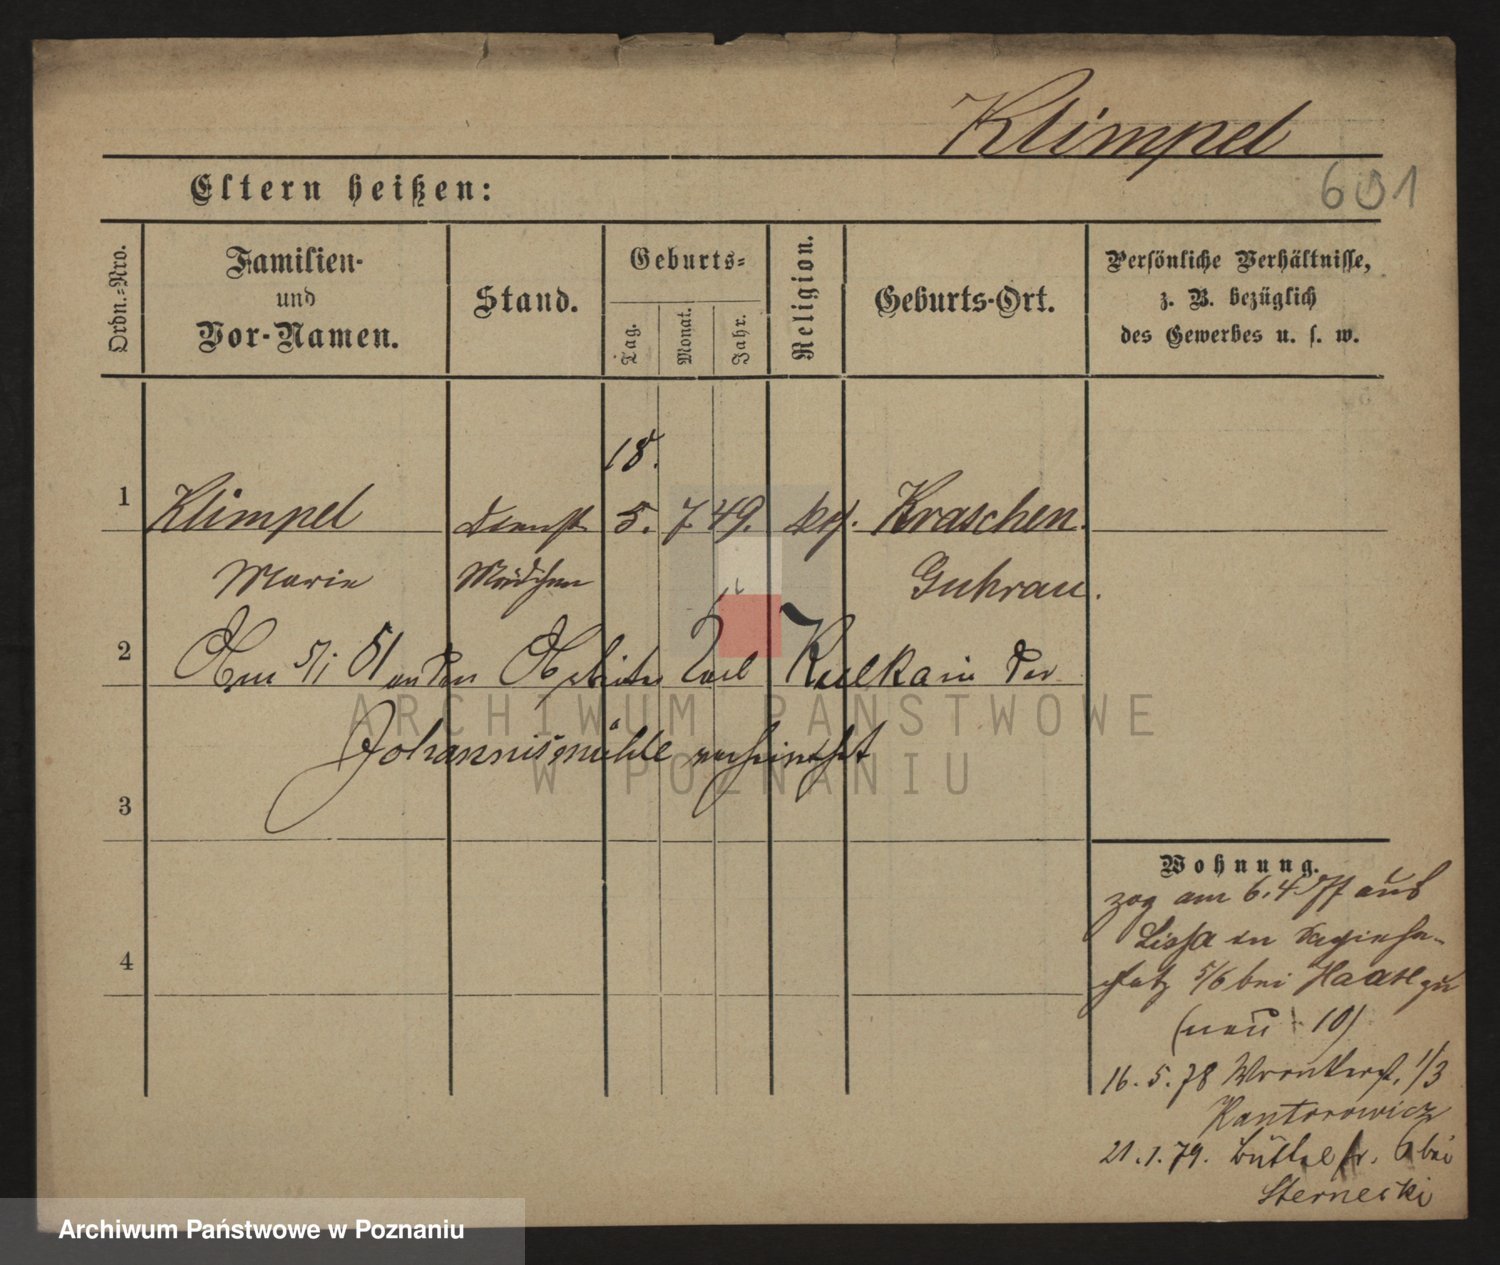 Klimpel
601
Eltern heißen:
Ordn.-Nro.
Familien-
und
Vor-Namen.
Stand.
Geburts-
Tag.
Monat.
Jahr.
Religion.
Geburts-Ort.
Persönliche Verhältnisse,
z. B. bezüglich
des Gewerbes u. s. w.
18.
1 Klimpel Dienst 5. 7 49. Kraschen.
Marie Mädchen Guhrau.
2 Am 5/1 81 an den Carl Kulka in der
Johannismühle verheirathet
3
4
Wohnung.
zog am 6. 4 77 aus
Lissa in Sapieha-
platz 5/6 bei Haase zu
(neu 10)
16. 5. 78 Wronkerst. 1/3
Kantorowicz
21. 1. 79. Büttelstr. 6 bei
Sternecki
ARCHIWUM PAŃSTWOWE
W POZNANIU
Archiwum Państwowe w Poznaniu